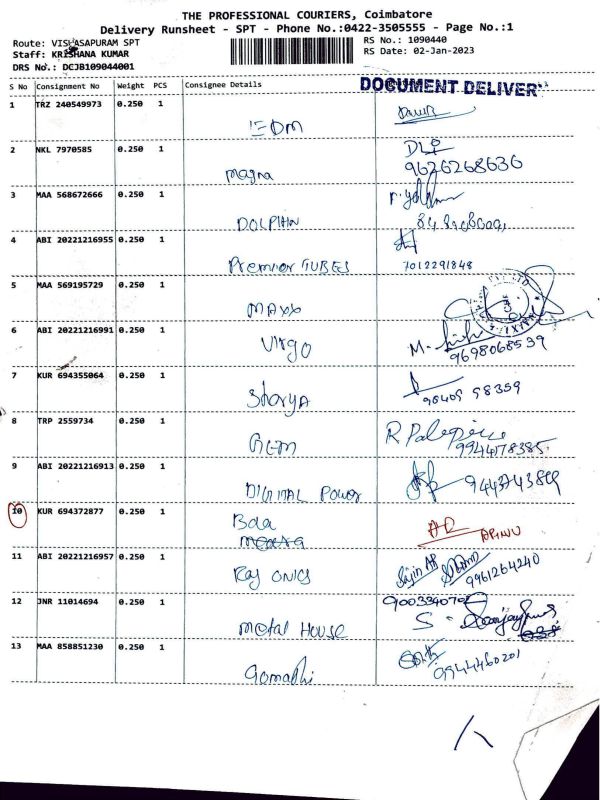 THE PROFESSIONAL COURIERS, Coimbatore
Delivery Runsheet - SPT - Phone No.:0422-3505555 - Page No.:1
Route: VISWASAPURAM SPT
RS No.: 1090440
Staff: KRISHANA KUMAR
RS Date: 02-Jan-2023
DRS No.: DCJB109044001
DOCUMENT DELIVERY
S No Consignment No Weight PCS Consignee Details
1 TRZ 240549973 0.250 1
IEDM
2 NKL 7970585 0.250 1
Magna 9626268636
3 MAA 568672666 0.250 1
DOLPHIN
4 ABI 20221216955 0.250 1
Premier TUBES 7012291848
5 MAA 569195729 0.250 1
MAXX
6 ABI 20221216991 0.250 1
Virgo 9698068539
7 KUR 694355064 0.250 1
Shorya
8 TRP 2559734 0.250 1
GEM 9944178385
9 ABI 20221216913 0.250 1
DIGITAL Power
10 KUR 694372877 0.250 1
Bda
11 ABI 20221216957 0.250 1
Raj ONICS 9961264240
12 JNR 11014694 0.250 1
Metal HOUSE
13 MAA 858851230 0.250 1
Gomathi 9944460201